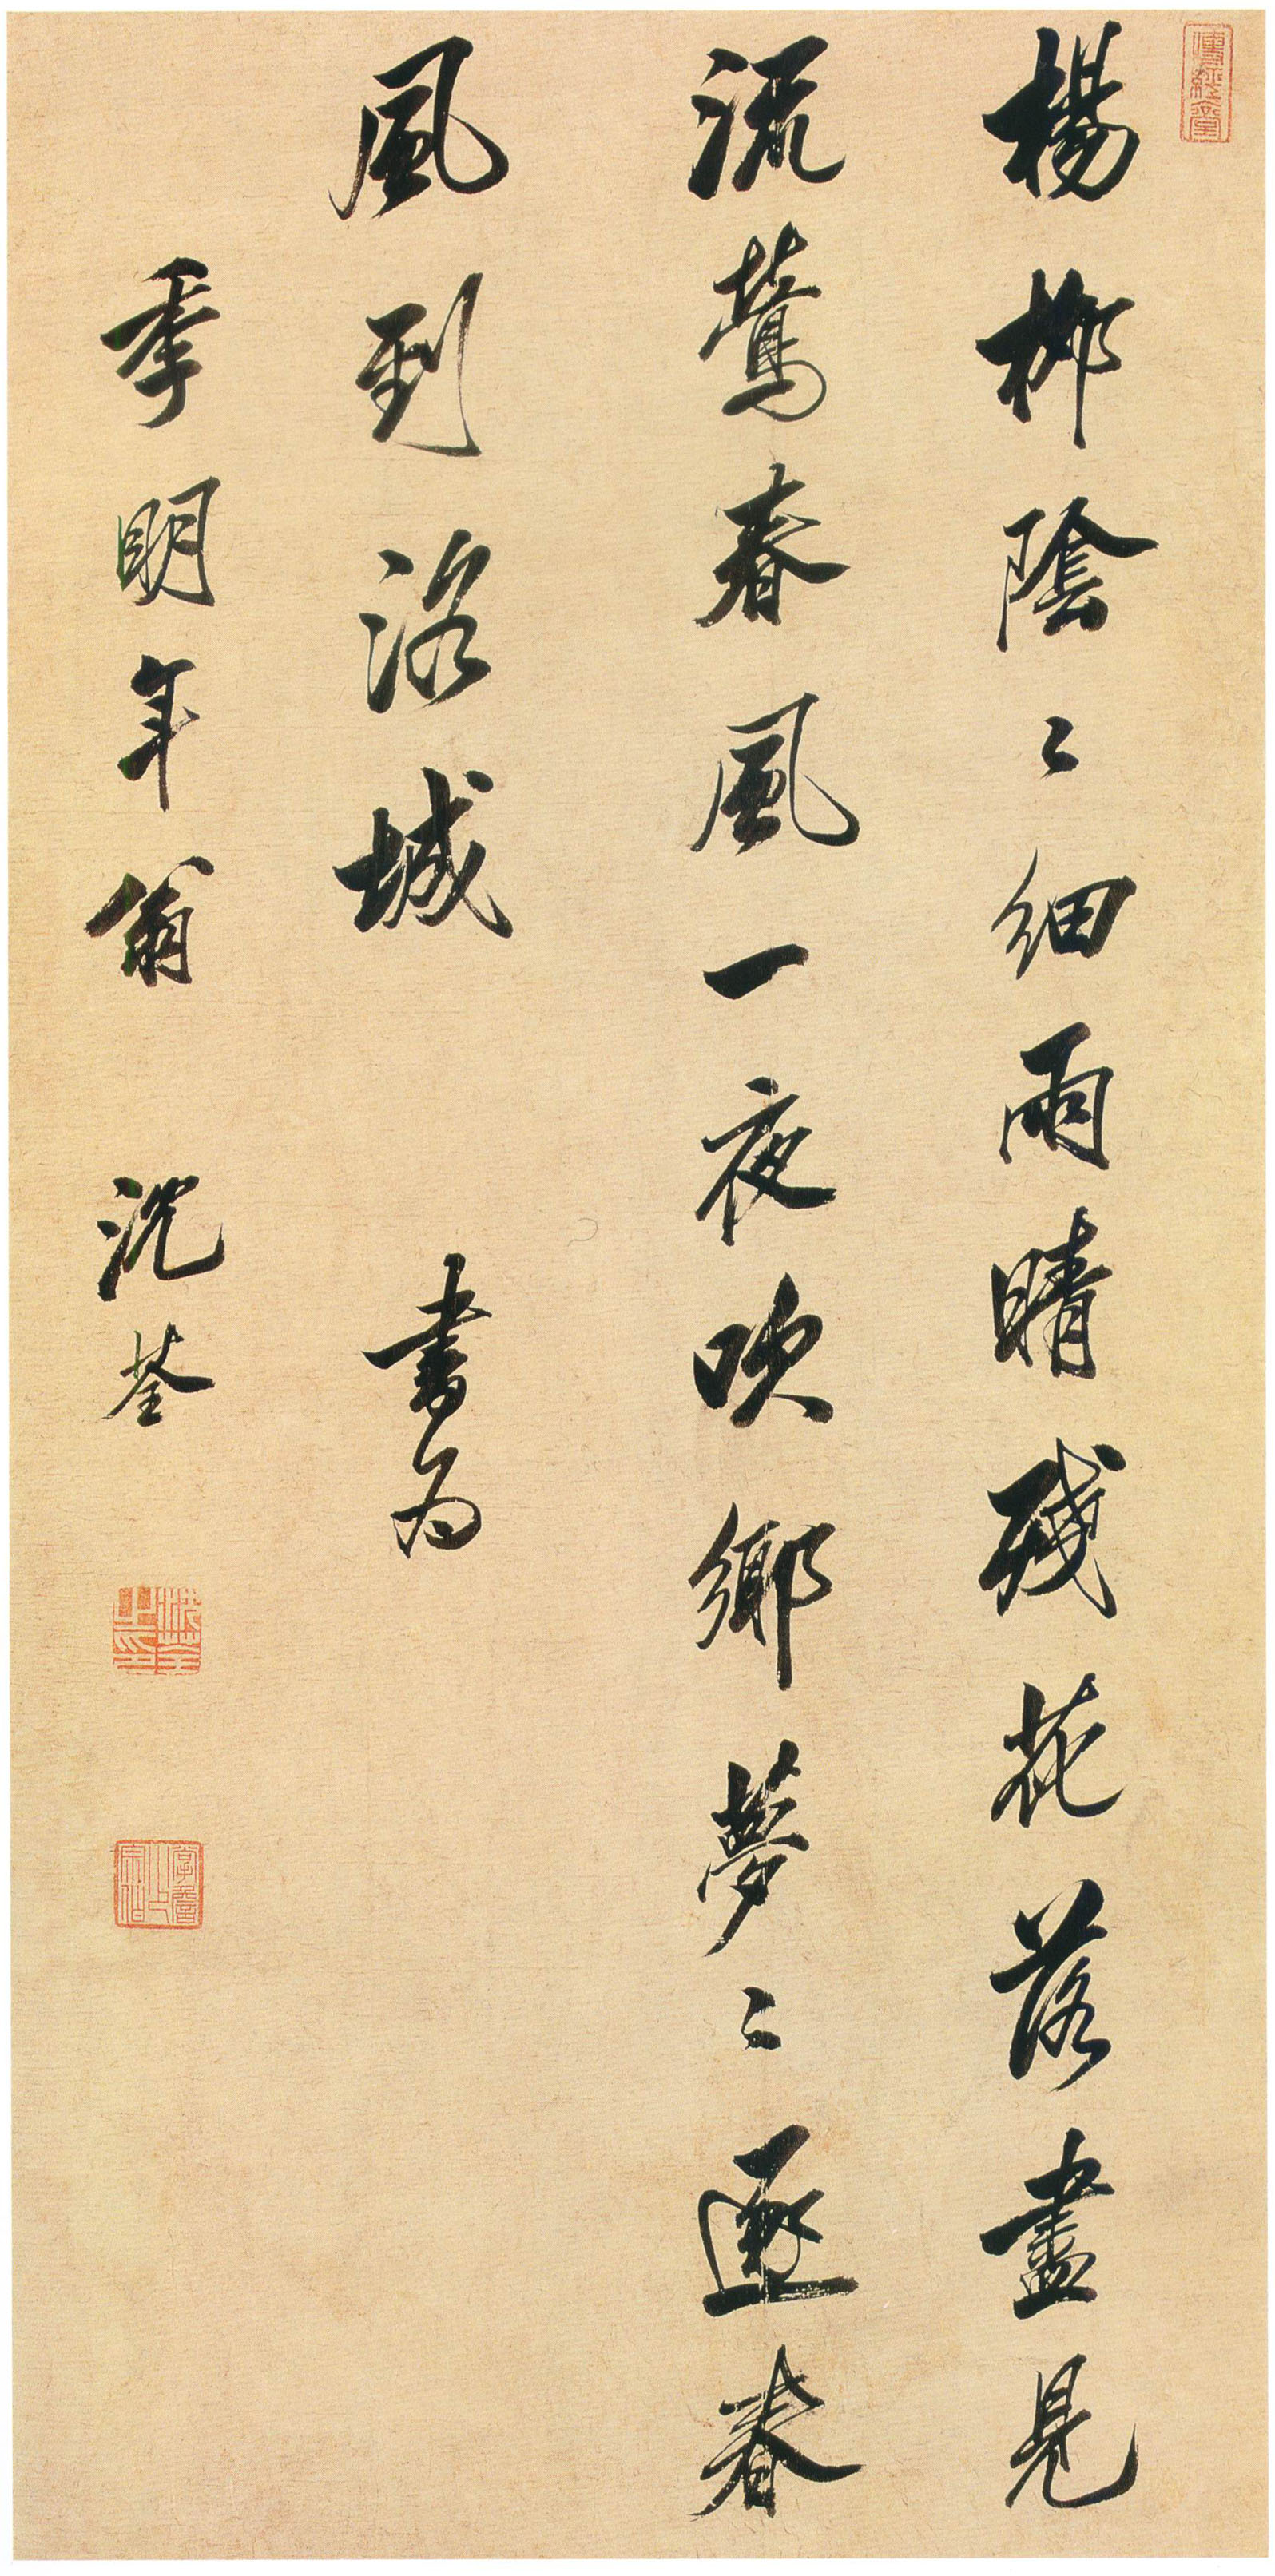 楊柳陰〻細雨晴殘花落盡見
流鶯春風一夜吹鄉夢〻逐春
風到洛城 書為
季明年翁 沈荃
傳經堂
沈荃之印